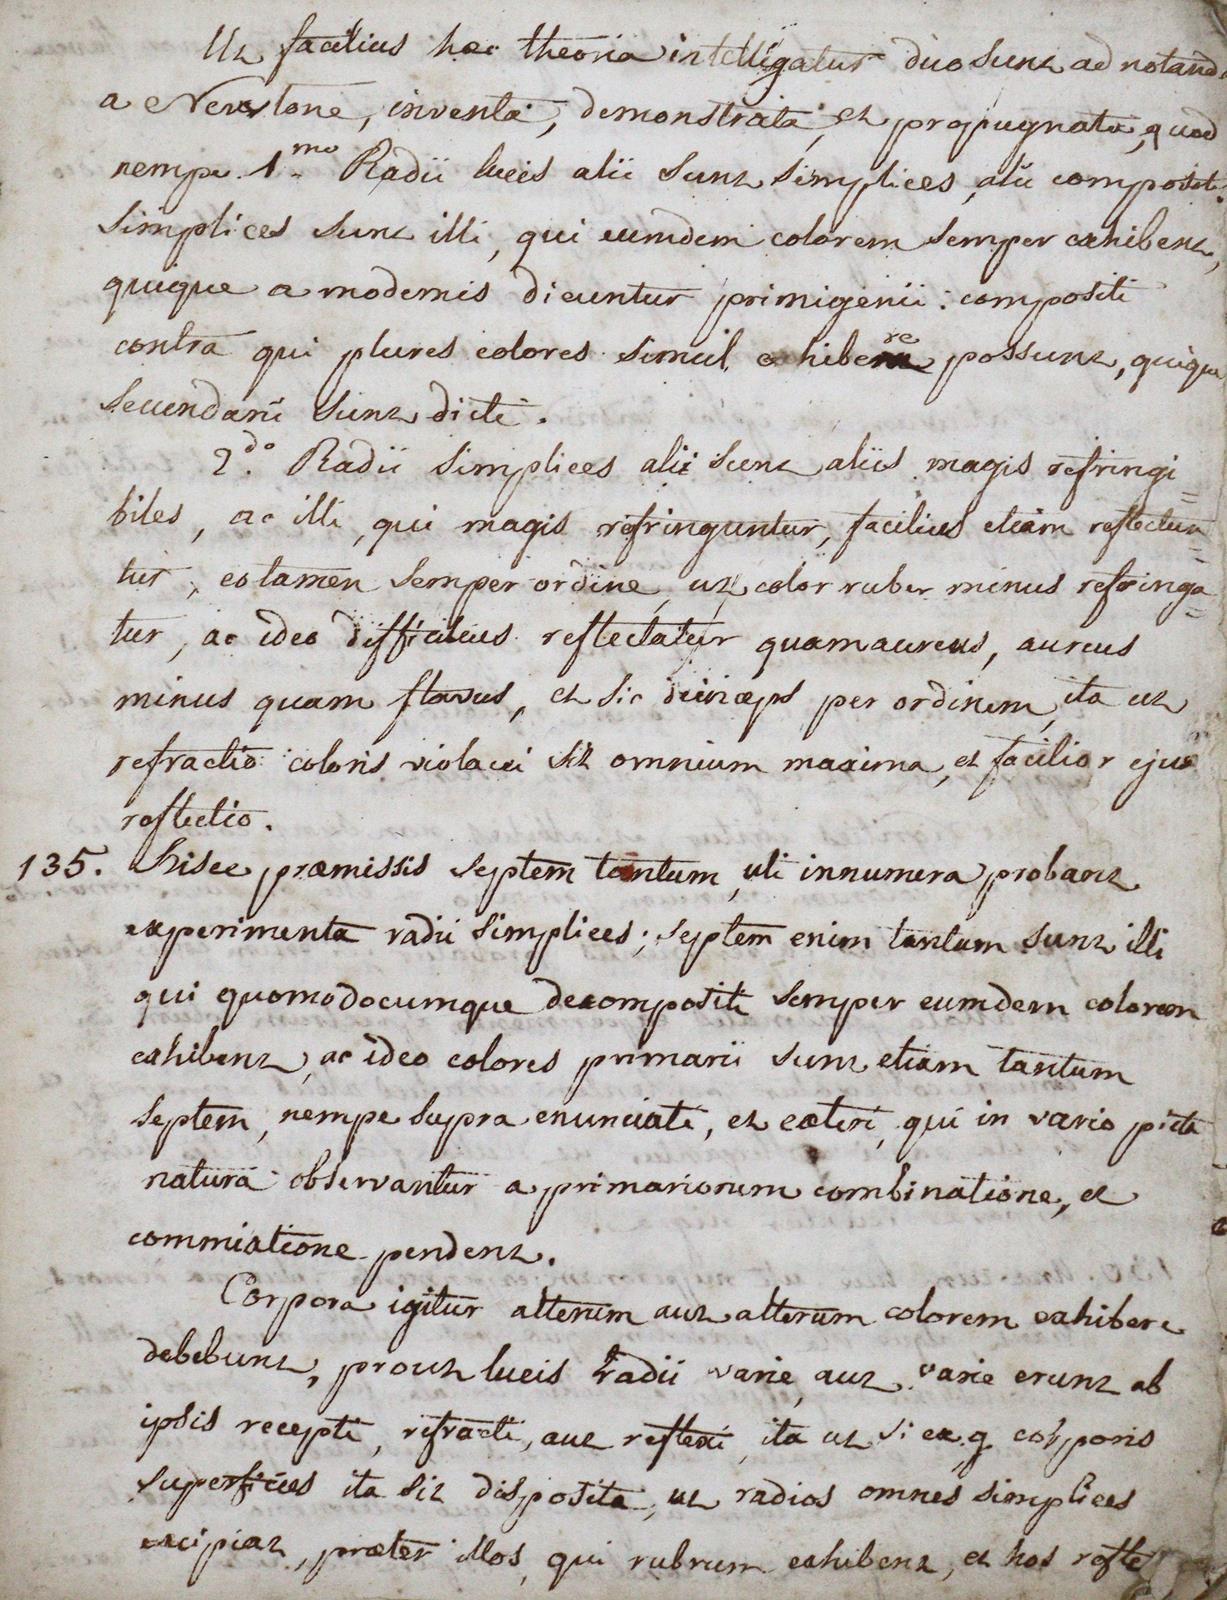 Ut facilius hæc theoria intelligatur duo sunt adnotanda
a Newtone, inventa, demonstrata, et propugnata, quod
nempe 1.mo Radii lucis alii sunt simplices, alii compositi.
Simplices sunt illi, qui eumdem colorem semper exhibent,
quique a modernis dicuntur primigenii: compositi
contra qui plures colores simul exhibere possunt, quique
secundarii sunt dicti.
2.do Radii simplices alii sunt aliis magis refringi=
biles, ac illi, qui magis refringuntur, facilius etiam reflectun=
tur, eo tamen semper ordine, ut color ruber minus refringa=
tur, ac ideo difficilius reflectatur quam aureus, aureus
minus quam flavus, et sic deinceps per ordinem, ita ut
refractio coloris violacei sit omnium maxima, et facilior ejus
reflectio.
135. Hisce præmissis septem tantum, uti innumera probant
experimenta radii simplices; septem enim tantum sunt illi
qui quomodocumque decompositi semper eumdem colorem
exhibent, ac ideo colores primarii sunt etiam tantum
septem, nempe supra enunciati, et cæteri, qui in vario picta
natura observantur a primariorum combinatione, et
commixtione pendent.
Corpora igitur alterum aut alterum colorem exhibere
debebunt, prout lucis radii varie, aut varie erunt ab
ipsis recepti, refracti, aut reflexi, ita ut si ex. g. corporis
superficies ita sit disposita, ut radios omnes simplices
excipiat, præter illos, qui rubrum exhibent, et hos refle